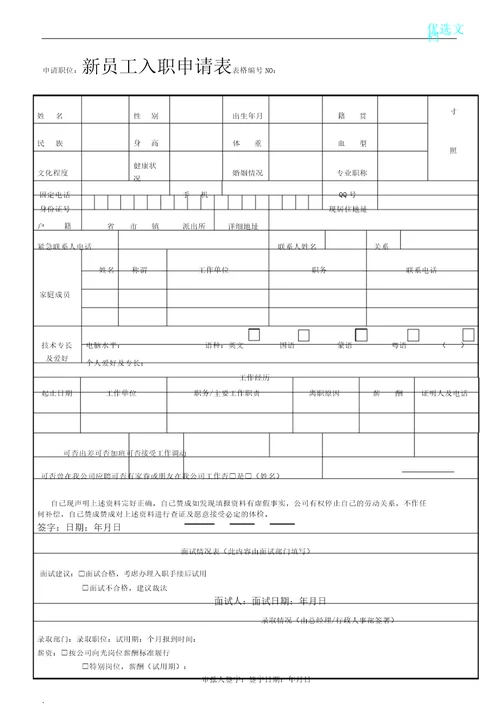 优选文
申请职位：新员工入职申请表表格编号 NO：
姓 名 性 别 出生年月 籍 贯 寸
民 族 身 高 体 重 血 型 照
文化程度 健康状况 婚姻情况 专业职称
固定电话 手 机 QQ 号
身份证号 现居住地址
户 籍 省 市 镇 派出所 详细地址
紧急联系人电话 联系人姓名 关系
姓名 称谓 工作单位 职务 联系电话
家庭成员
技术专长 电脑水平： 语种：英文 国语 蒙语 粤语 （ ）
及爱好 个人爱好及专长：
工作经历
起止日期 工作单位 职务/主要工作职责 离职原因 薪 酬 证明人及电话
可否出差可否加班可否接受工作调动
可否曾在我公司应聘可否有家眷或朋友在我公司工作否□是□（姓名）
自己现声明上述资料完好正确，自己赞成如发现填报资料有虚假事实，公司有权停止自己的劳动关系，不作任
何补偿，自己赞成赞成对上述资料进行查证及愿意接受必定的体检。
签字：日期：年月日
面试情况表（此内容由面试部门填写）
面试建议：□面试合格，考虑办理入职手续后试用
□面试不合格，建议裁法
面试人：面试日期：年月日
录取情况（由总经理/行政人事部签署）
录取部门：录取职位：试用期：个月报到时间：
薪资：□按公司向光岗位薪酬标准履行
□特别岗位，薪酬（试用期）：
审报人签字：签字日期：年月日
.